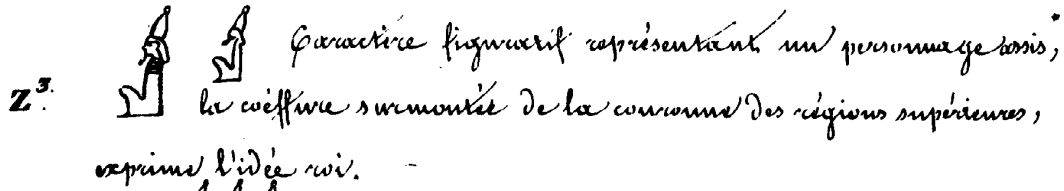 Caractère figuratif représentant un personnage assis,
Z³. la coëffure surmontée de la couronne des régions supérieures,
exprime l'idée roi.